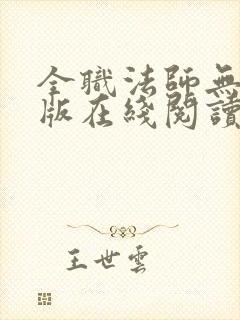 全職法師無
版在綫閱讀
王世雲